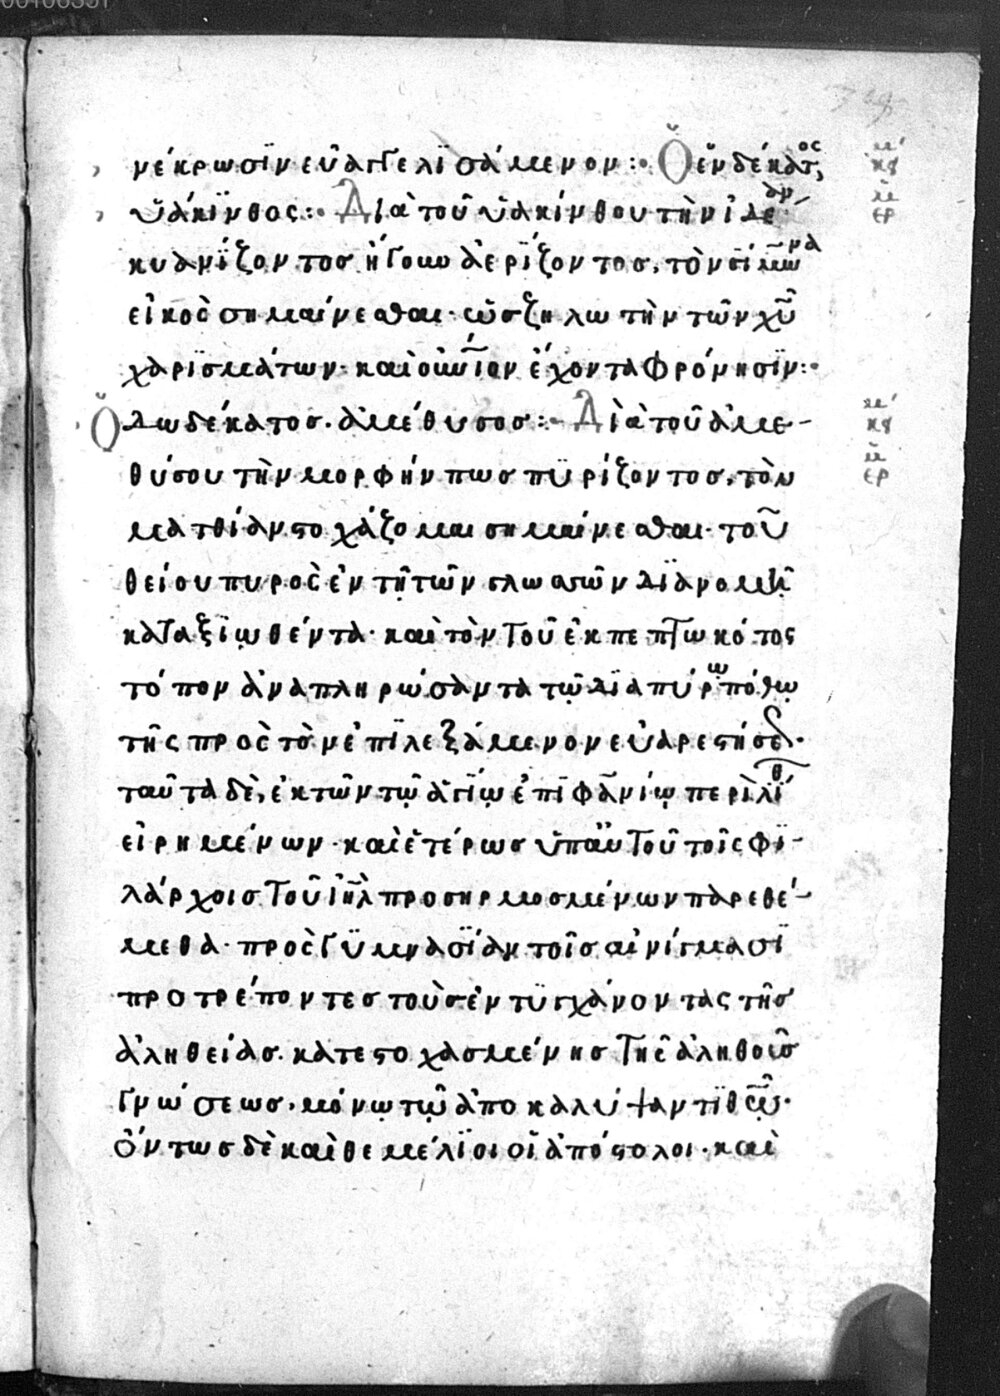 νέκρωσϊν εὐαγγελϊσάμενον:· Ὁ ἑνδέκατος,
ὑάκϊνθος:· Διὰ τοῦ ὑακίνθου τὴν ἰδέαν
κυανΐζοντος ἤγουν ἀερΐζοντος, τὸν σίμωνα
εἰκὸς σημαίνεσθαι· ὡς ζηλωτὴν τῶν χῦ
χαρϊσμάτων· καὶ οὐνιον ἔχοντα φρόνησϊν:·
Ὁ δωδέκατος. ἀμέθυσος:· Διὰ τοῦ ἀμε-
θύσου τὴν μορφήν πως πϋρίζοντος, τὸν
ματθίαν στοχάζομαι σημαίνεσθαι· τοῦ
θείου πυρὸς ἐν τῇ τῶν γλωσσῶν δϊανομῇ
καταξϊωθέντα· καὶ τὸν τοῦ ἐκπεπτωκότος
τόπον ἀναπληρώσαντα τῷ δϊαπύρω πόθω
τῆς πρὸς τὸν ἐπϊλεξάμενον εὐαρεστήσεως·
ταῦτα δὲ, ἐκ τῶν τῷ ἁγΐῳ ἐπϊφανίῳ περὶ λΐθ
εἰρημένων· καὶ ἑτέρως ὑπ' αὐτοῦ τοῖς φϊ-
λάρχοις τοῦ ἰηλ προσηρμοσμένων παρεθέ-
μεθα· πρὸς γϋμνασΐαν τοῖς αἰνίγμασϊ
προτρέποντες τοὺς ἐντϋγχάνοντας τῆς
ἀληθείας. κατεστοχασμένης τῆς ἀληθοῦς
γνώσεως. μόνῳ τῷ ἀποκαλύψαντϊ θῶ·
ὄντως δὲ καὶ θεμέλϊοι οἱ ἀπόστολοι· καὶ